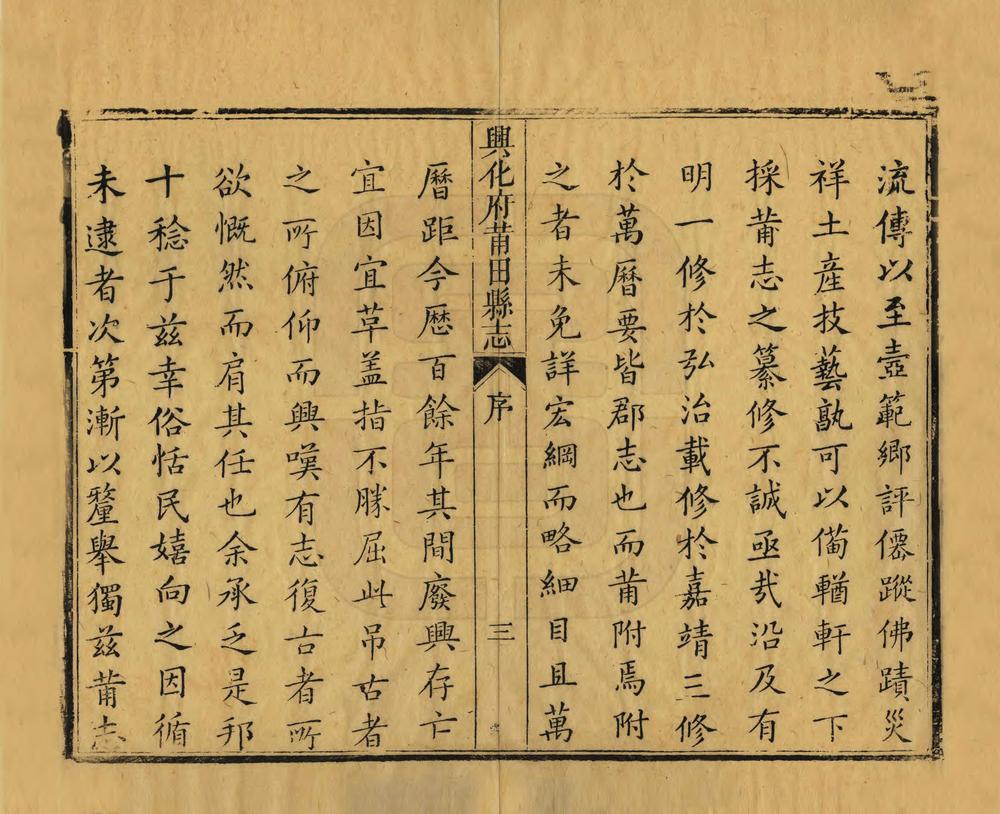 流傳以至壼範鄉評僊蹤佛蹟災
祥土產技藝孰可以俻輶軒之下
採莆志之纂修不誠亟㦲沿及有
明一修於弘治載修於嘉靖三修
於萬曆要皆郡志也而莆附焉附
之者未免詳宏綱而略細目且萬
興化府莆田縣志 序 三
曆距今歷百餘年其間廢興存亡
宜因宜草盖指不勝屈此吊古者
之所俯仰而興嘆有志復古者所
欲慨然而肩其任也余承乏是邦
十稔于兹幸俗恬民嬉向之因循
未逮者次第漸以釐舉獨兹莆志